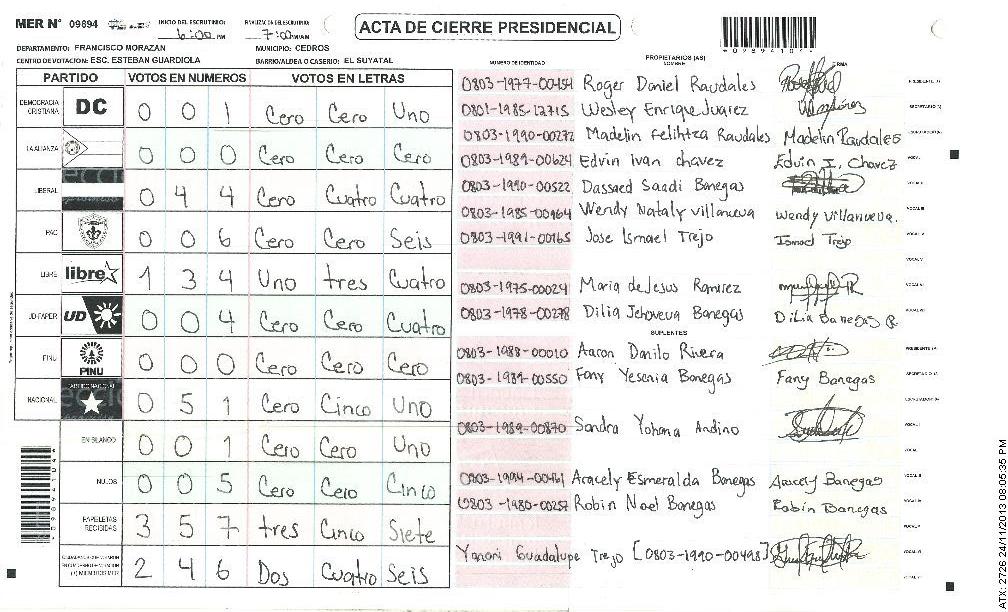 MER N° 09894 INICIO DEL ESCRUTINIO: 6:00 PM FINALIZACIÓN DEL ESCRUTINIO: 7:00 PM/AM
ACTA DE CIERRE PRESIDENCIAL
DEPARTAMENTO: FRANCISCO MORAZAN MUNICIPIO: CEDROS
CENTRO DE VOTACION: ESC. ESTEBAN GUARDIOLA BARRIO/ALDEA O CASERIO: EL SUYATAL
PARTIDO VOTOS EN NUMEROS VOTOS EN LETRAS
DEMOCRACIA CRISTIANA DC 0 0 1 Cero Cero Uno
LA ALIANZA 0 0 0 Cero Cero Cero
LIBERAL 0 4 4 Cero Cuatro Cuatro
PAC 0 0 6 Cero Cero Seis
LIBRE libre 1 3 4 Uno tres Cuatro
UD-FAPER UD 0 0 4 Cero Cero Cuatro
PINU PINU 0 0 0 Cero Cero Cero
NACIONAL 0 5 1 Cero Cinco Uno
EN BLANCO 0 0 1 Cero Cero Uno
NULOS 0 0 5 Cero Cero Cinco
PAPELETAS RECIBIDAS 3 5 7 tres Cinco Siete
2 4 6 Dos Cuatro Seis
NUMERO DE IDENTIDAD PROPIETARIOS (AS) NOMBRE FIRMA
0803-1977-00454 Roger Daniel Raudales PRESIDENTE (A)
0801-1985-12715 Wesley Enrique Juarez SECRETARIO (A)
0803-1990-00272 Madelin Felihtza Raudales Madelin Raudales
0803-1989-00624 Edvin ivan chavez Edvin I. Chavez VOCAL I
0803-1990-00522 Dassaed Saadi Banegas VOCAL II
0803-1985-00964 Wendy Nataly villanueva Wendy villanueva. VOCAL III
0803-1991-00165 Jose Ismael Trejo Ismael Trejo VOCAL IV
VOCAL V
0803-1975-00024 Maria de Jesus Ramirez VOCAL VI
0803-1978-00278 Dilia Jehoveua Banegas Dilia Banegas R VOCAL VII
SUPLENTES
0803-1988-00010 Aaron Danilo Rivera
0803-1989-00550 Fany Yesenia Banegas Fany Banegas
0803-1989-00870 Sandra Yohana Andino VOCAL I
0803-1994-00461 Aracely Esmeralda Banegas Aracely Banegas
0803-1980-00257 Robin Noel Banegas Robin Banegas
Yanori Guadalupe Trejo [0803-1990-00498]
ATX: 2726 24/11/2013 08:05:35 PM